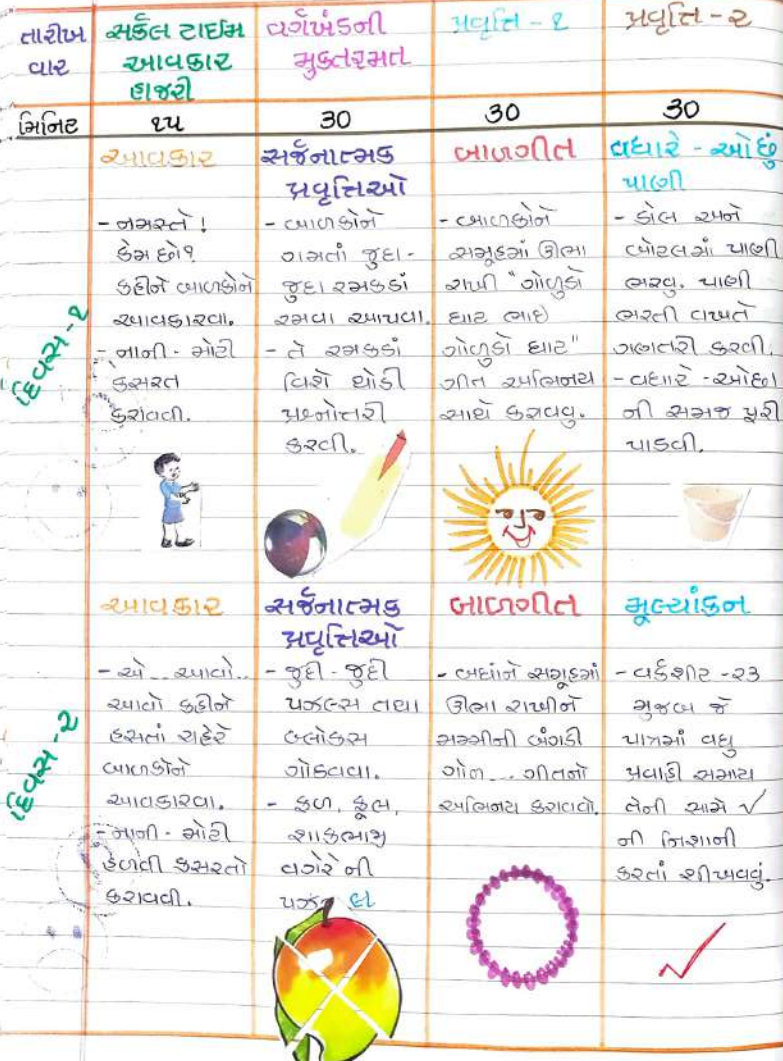 તારીખ
વાર
સર્કલ ટાઈમ
આવકાર
હાજરી
વર્ગખંડની
મુક્તરમત
પ્રવૃત્તિ - ૧
પ્રવૃત્તિ - ૨
મિનિટ
૧૫
30
30
30
દિવસ - ૧
આવકાર
- નમસ્તે !
કેમ છો?
કહીને બાળકોને
આવકારવા.
- નાની - મોટી
કસરત
કરાવવી.
સર્જનાત્મક
પ્રવૃત્તિઓ
- બાળકોને
ગમતાં જુદા-
જુદા રમકડાં
રમવા આપવા.
- તે રમકડાં
વિશે થોડી
પ્રશ્નોત્તરી
કરવી.
બાળગીત
- બાળકોને
સમૂહમાં ઊભા
રાખી "ગોળુડો
ઘાટ ભાઇ
ગોળુડો ઘાટ"
ગીત અભિનય
સાથે કરાવવુ.
વધારે - ઓછું
પાણી
- ડોલ અને
બોટલમાં પાણી
ભરવુ. પાણી
ભરતી વખતે
ગણતરી કરવી.
- વધારે - ઓછા
ની સમજ પૂરી
પાડવી.
દિવસ - ૨
આવકાર
- એ.. આવો..
આવો કહીને
હસતાં ચહેરે
બાળકોને
આવકારવા.
- નાની - મોટી
હળવી કસરતો
કરાવવી.
સર્જનાત્મક
પ્રવૃત્તિઓ
- જુદી - જુદી
પઝલ્સ તથા
બ્લોક્સ
ગોઠવવા.
- ફળ, ફૂલ,
શાકભાજી
વગેરે ની
પઝલ
બાળગીત
- બધાંને સમૂહમાં
ઊભા રાખીને
મમ્મીની બંગડી
ગોળ... ગીતનો
અભિનય કરાવવો.
મૂલ્યાંકન
- વર્કશીટ - ૨૩
મુજબ જે
પાત્રમાં વધુ
પ્રવાહી સમાય
તેની સામે ✓
ની નિશાની
કરતાં શીખવવું.